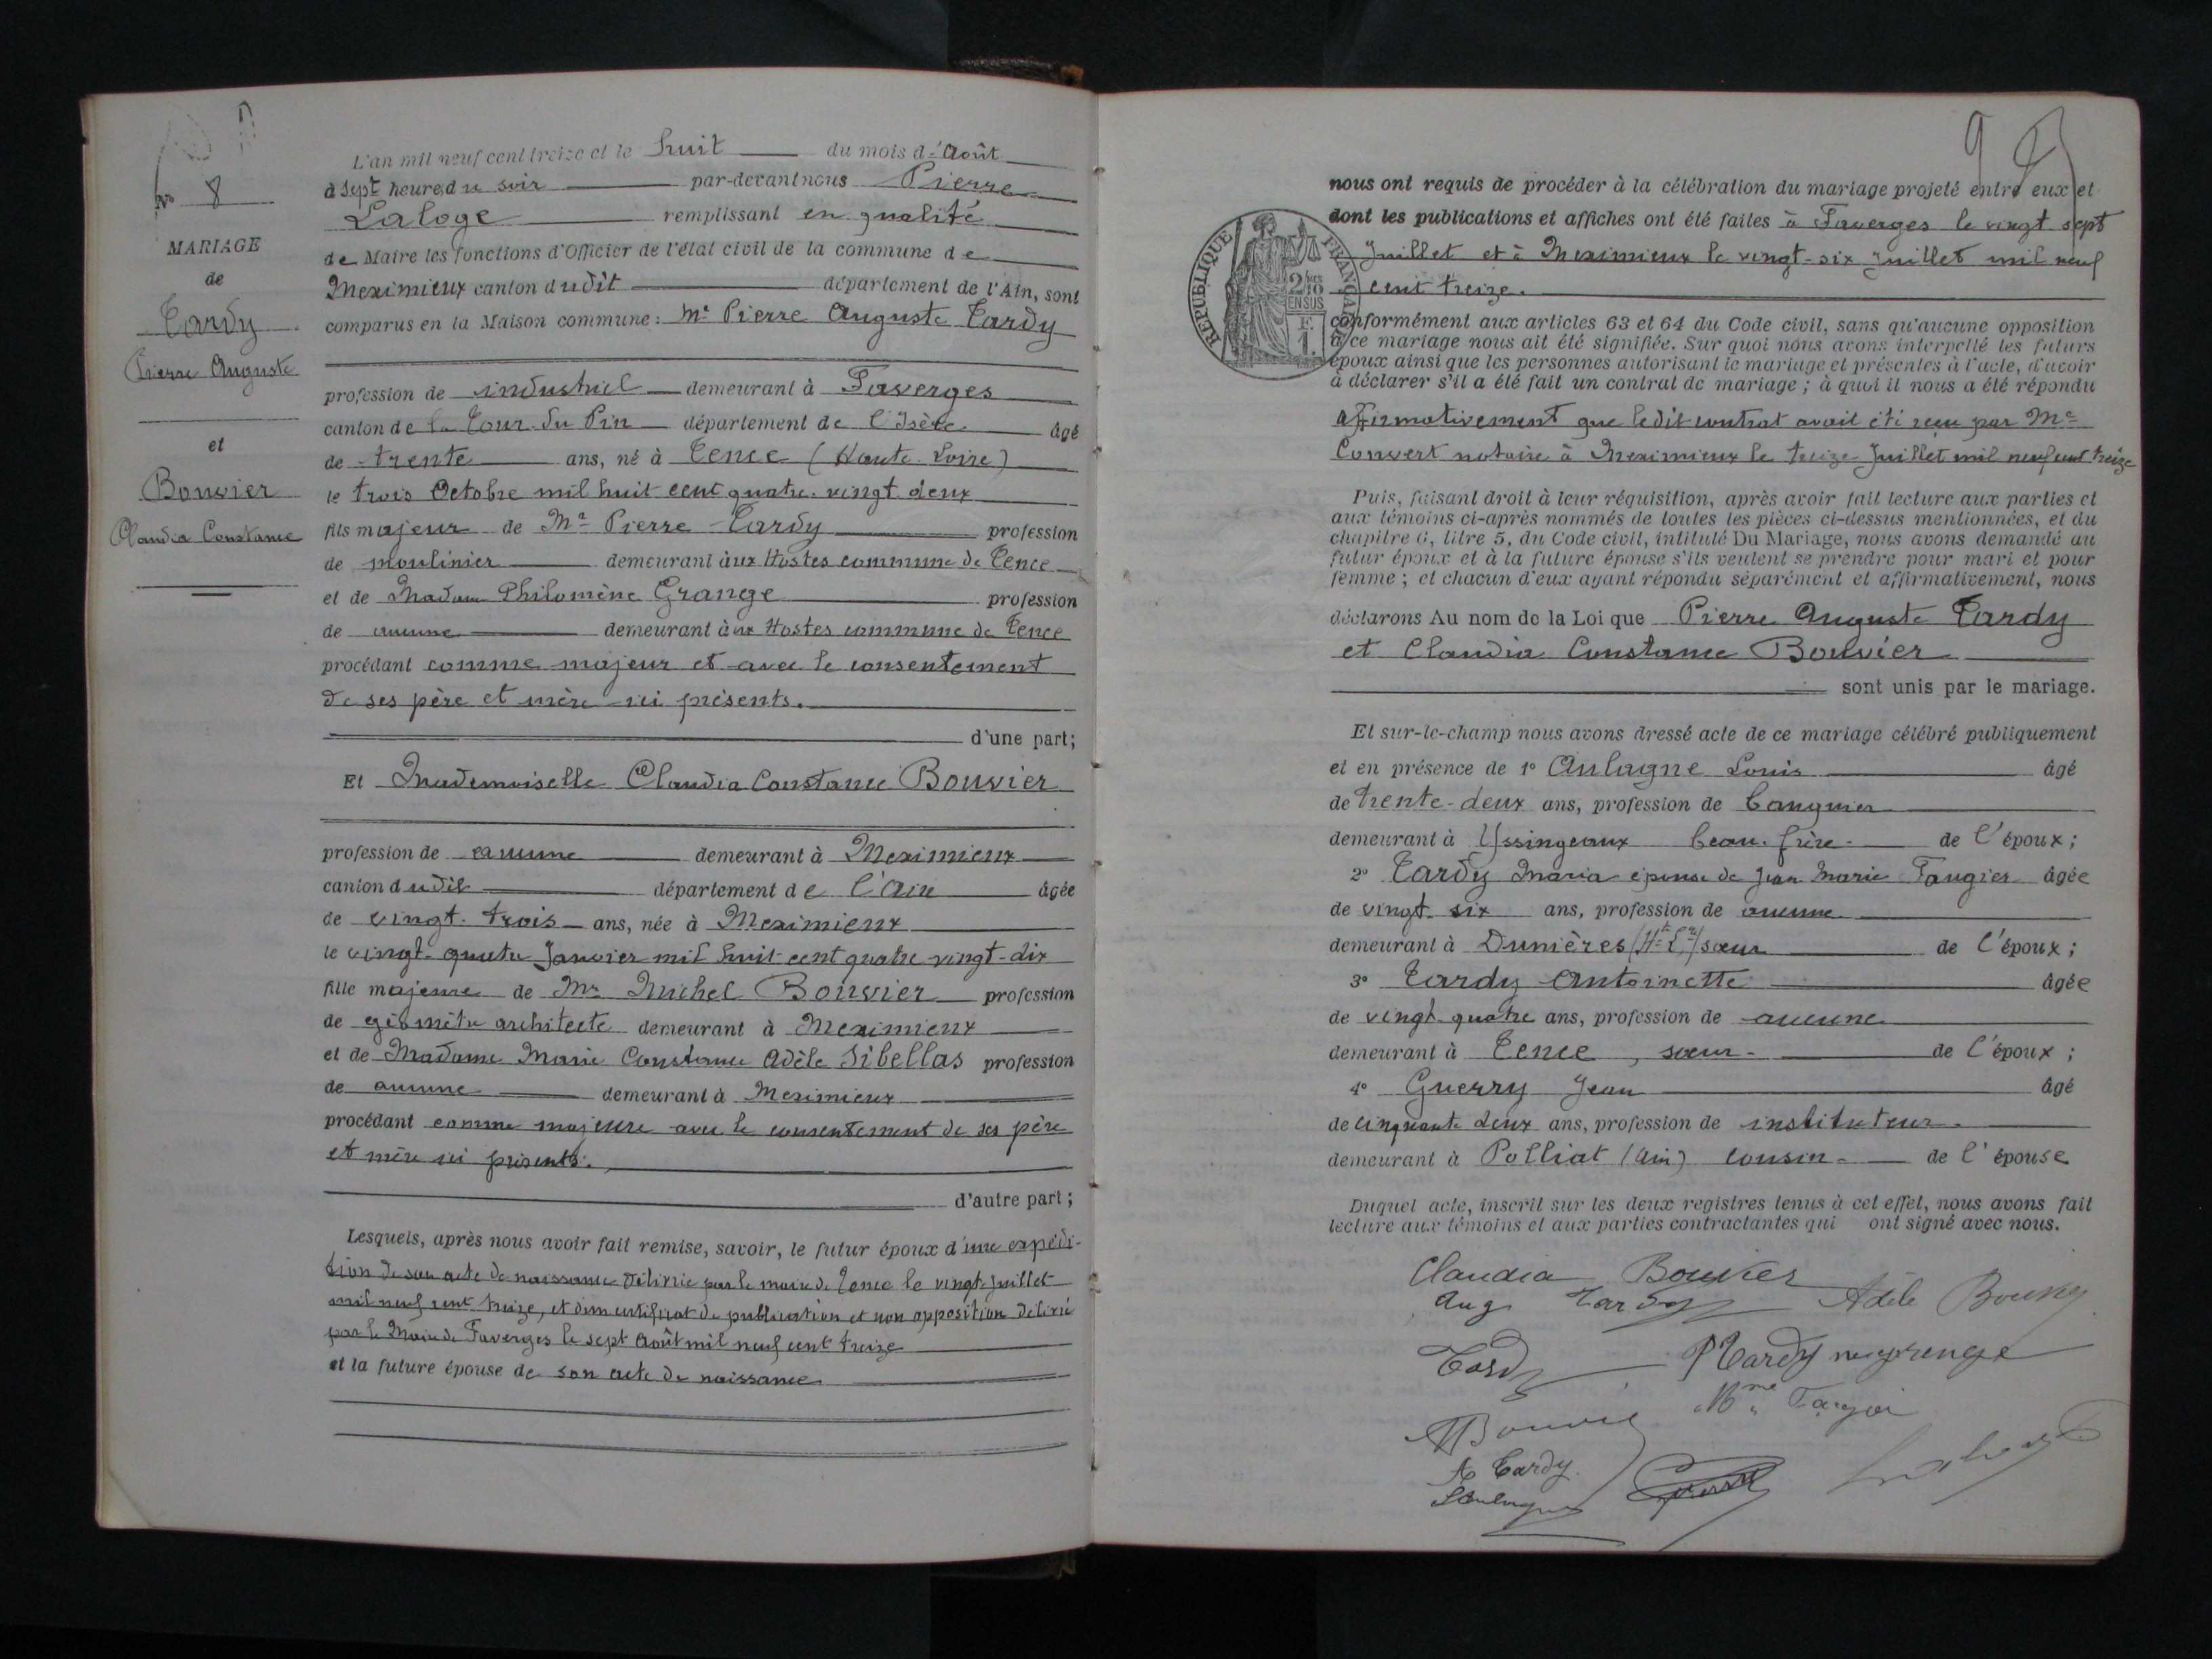 N° 8
MARIAGE
de
Tardy
Pierre Auguste
et
Bouvier
Claudia Constance
L'an mil neuf cent treize et le huit du mois d'Août
à sept heures du soir par-devant nous Pierre
Laloge remplissant en qualité
de Maire les fonctions d'Officier de l'état civil de la commune de
Meximieux canton dudit département de l'Ain, sont
comparus en la Maison commune : Mr Pierre Auguste Tardy
profession de industriel demeurant à Faverges
canton de la Tour du Pin département de l'Isère âgé
de trente ans, né à Tence (Haute-Loire)
le trois Octobre mil huit cent quatre-vingt deux
fils majeur de Mr Pierre Tardy profession
de moulinier demeurant aux Hostes commune de Tence
et de Madame Philomène Grange profession
de aucune demeurant aux Hostes commune de Tence
procédant comme majeur et avec le consentement
de ses père et mère ici présents.
d'une part;
Et Mademoiselle Claudia Constance Bouvier
profession de aucune demeurant à Meximieux
canton dudit département de l'Ain âgée
de vingt-trois ans, née à Meximieux
le vingt-quatre Janvier mil huit cent quatre-vingt-dix
fille majeure de Mr Michel Bouvier profession
de géomètre architecte demeurant à Meximieux
et de Madame Marie Constance Adèle Sibellas profession
de aucune demeurant à Meximieux
procédant comme majeure avec le consentement de ses père
et mère ici présents.
d'autre part;
Lesquels, après nous avoir fait remise, savoir, le futur époux d'une expédi-
tion de son acte de naissance délivrée par le maire de Tence le vingt juillet
mil neuf cent treize, et d'un certificat de publication et non opposition délivré
par le Maire de Faverges le sept Août mil neuf cent treize
et la future épouse de son acte de naissance
nous ont requis de procéder à la célébration du mariage projeté entre eux et
dont les publications et affiches ont été faites à Faverges le vingt sept
Juillet et à Meximieux le vingt-six Juillet mil neuf
cent treize.
RÉPUBLIQUE FRANÇAISE
conformément aux articles 63 et 64 du Code civil, sans qu'aucune opposition
à ce mariage nous ait été signifiée. Sur quoi nous avons interpellé les futurs
époux ainsi que les personnes autorisant le mariage et présentes à l'acte, d'avoir
à déclarer s'il a été fait un contrat de mariage ; à quoi il nous a été répondu
affirmativement que ledit contrat avait été reçu par Me
Convert notaire à Meximieux le treize Juillet mil neuf cent treize
Puis, faisant droit à leur réquisition, après avoir fait lecture aux parties et
aux témoins ci-après nommés de toutes les pièces ci-dessus mentionnées, et du
chapitre 6, titre 5, du Code civil, intitulé Du Mariage, nous avons demandé au
futur époux et à la future épouse s'ils veulent se prendre pour mari et pour
femme ; et chacun d'eux ayant répondu séparément et affirmativement, nous
déclarons Au nom de la Loi que Pierre Auguste Tardy
et Claudia Constance Bouvier
sont unis par le mariage.
Et sur-le-champ nous avons dressé acte de ce mariage célébré publiquement
et en présence de 1° Aulagne Louis âgé
de trente-deux ans, profession de banquier
demeurant à Yssingeaux beau-frère de l'époux ;
2° Tardy Maria épouse de Jean Marie Faugier âgée
de vingt-six ans, profession de aucune
demeurant à Dunières (Hte Lre) sœur de l'époux ;
3° Tardy Antoinette âgée
de vingt-quatre ans, profession de aucune
demeurant à Tence, sœur de l'époux ;
4° Guerry Jean âgé
de cinquante deux ans, profession de instituteur
demeurant à Polliat (Ain) cousin de l'épouse
Duquel acte, inscrit sur les deux registres tenus à cet effet, nous avons fait
lecture aux témoins et aux parties contractantes qui ont signé avec nous.
Claudia Bouvier
Aug Tardy Adèle Bouvier
Tardy P Tardy née grange
Mme Faugier
MBouvier
A Tardy
LAulagne